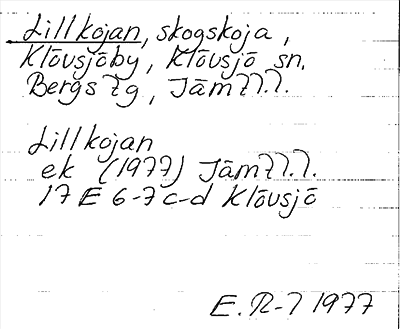 Lillkojan, skogskoja,
Klövsjöby, Klövsjö sn.
Bergs tg, Jämtl.
Lillkojan
ek (1977) Jämtl.
17 E 6-7 c-d Klövsjö
E. R-l 1977